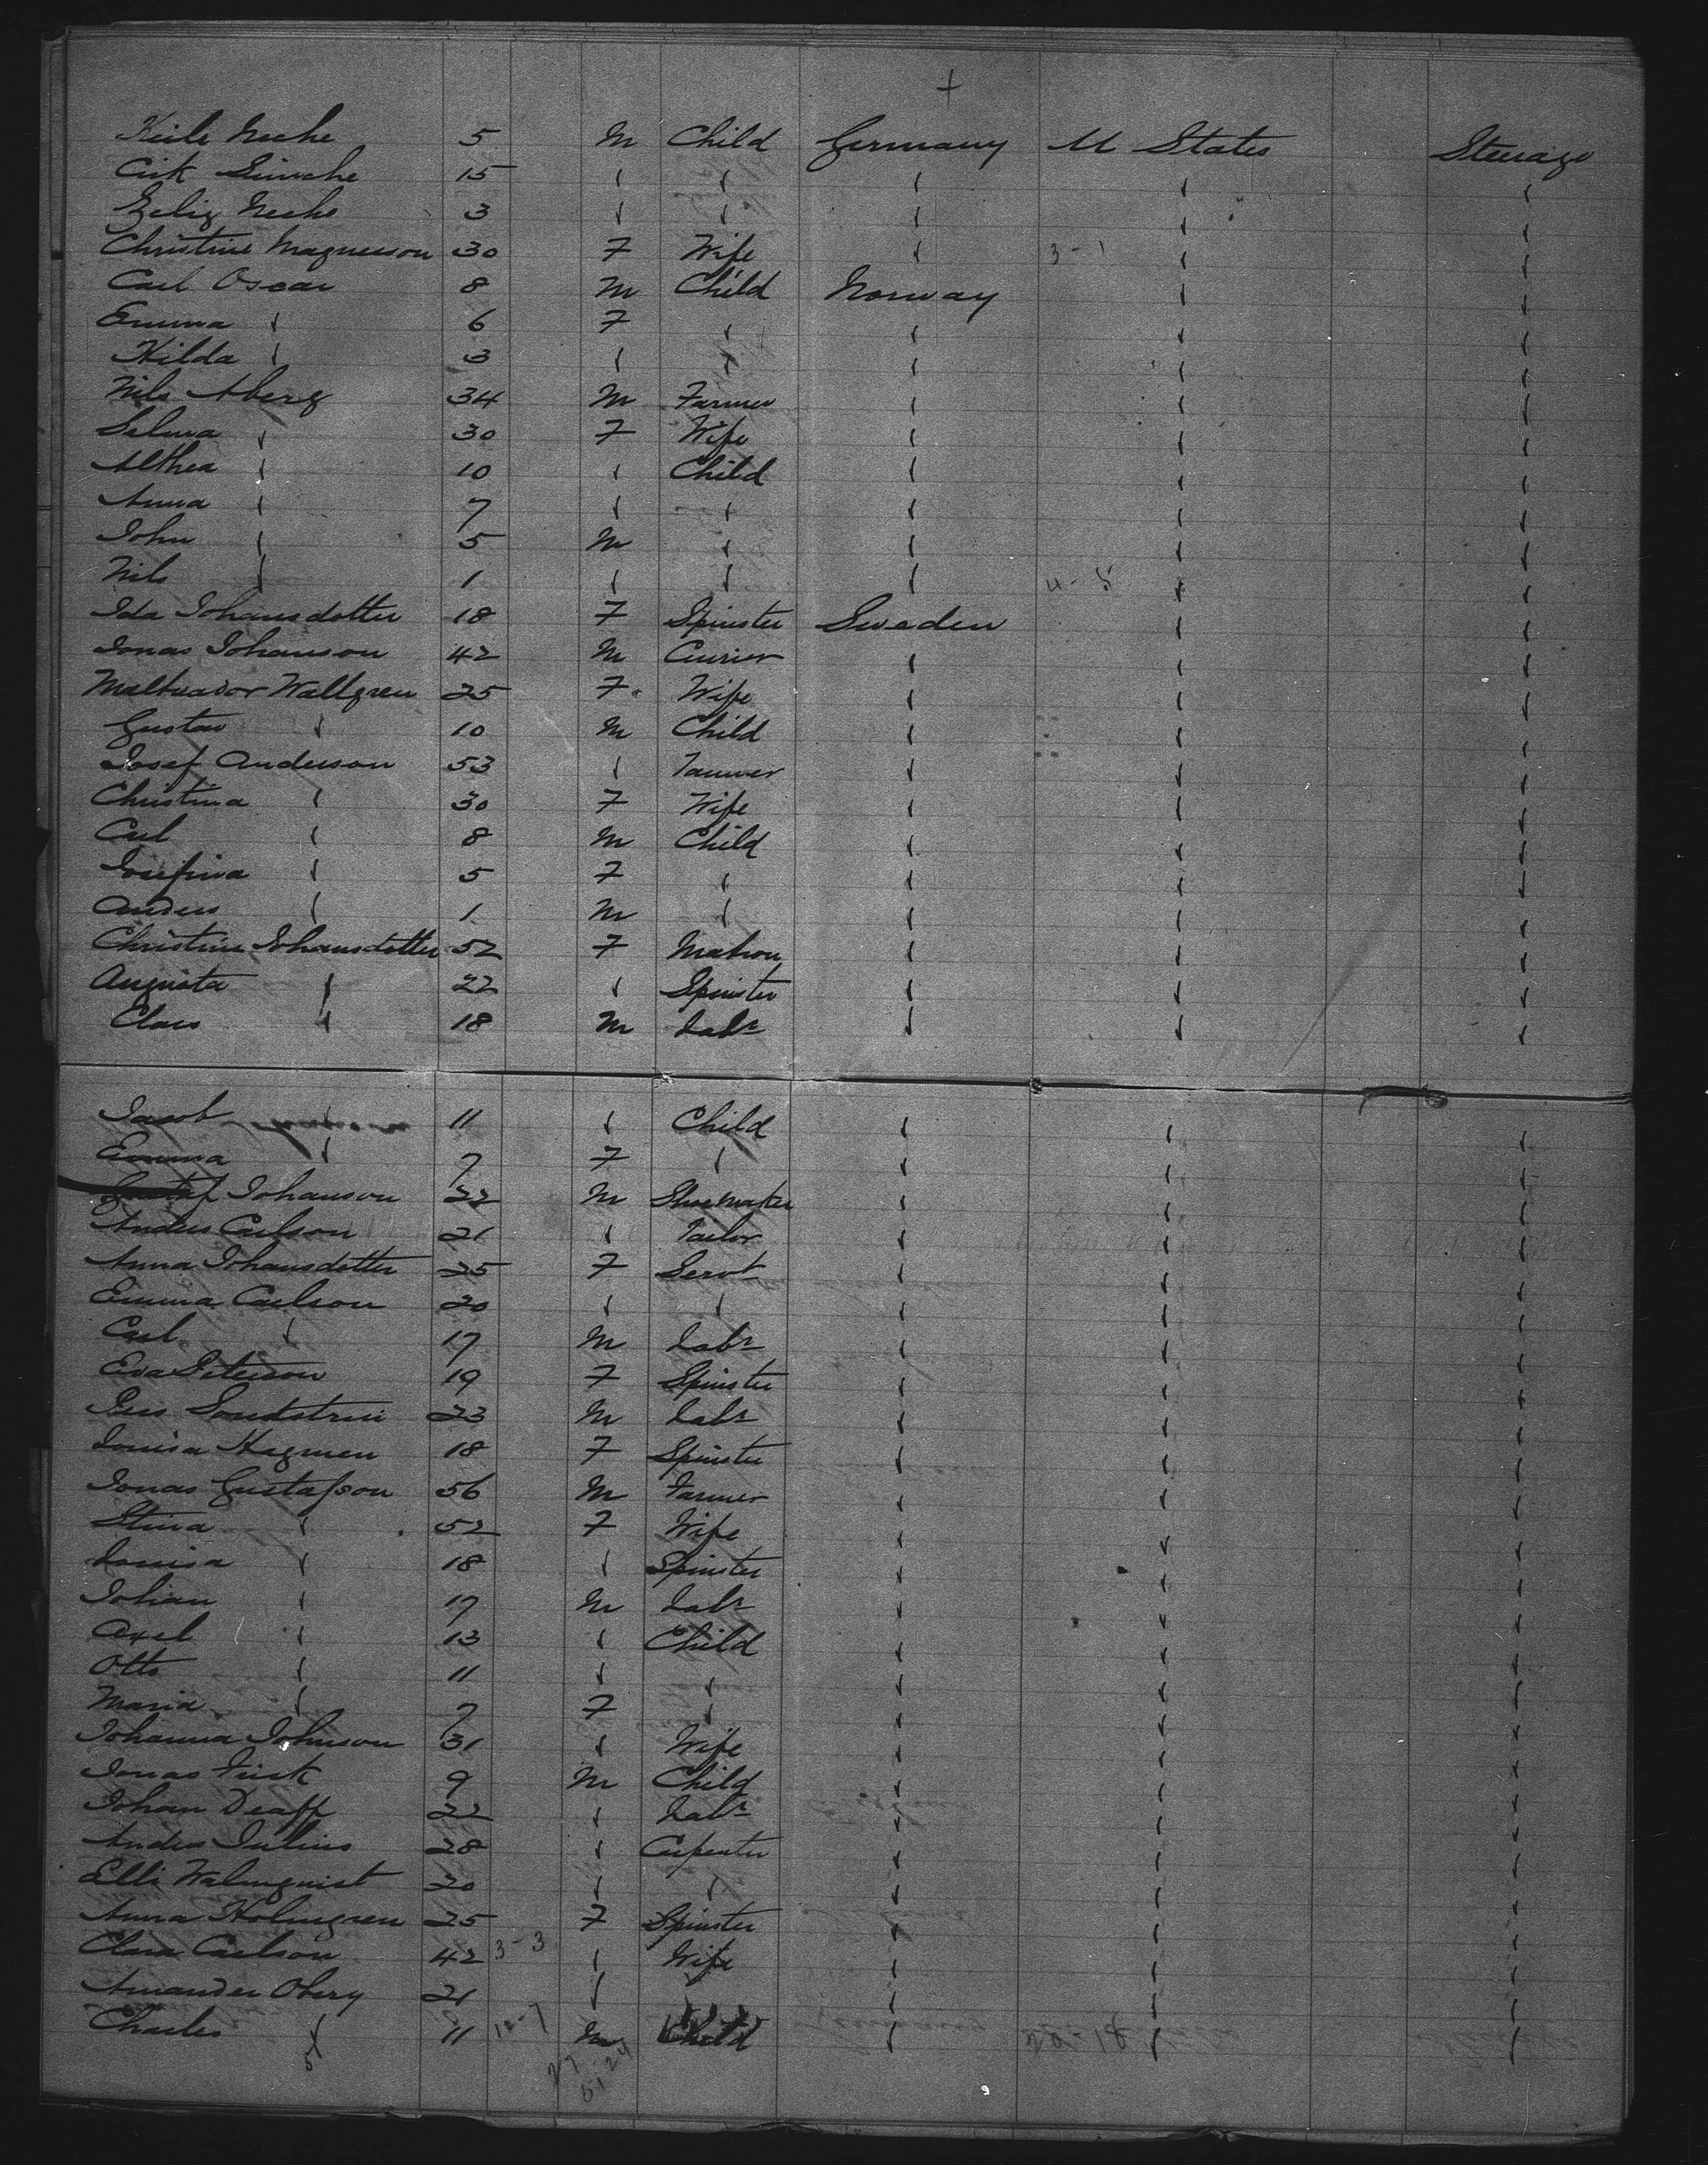 +
Keile Neche 5 M Child Germany U States Steerage
Cirk Simche 15 " " " " "
Zelig Neche 3 " " " " "
Christine Magnesson 30 F Wife " 3-1 " "
Carl Oscar 8 M Child Norway " "
Emma " 6 F " " " "
Hilda " 3 " " " " "
Nils Aberg 34 M Farmer " " "
Selma " 30 F Wife " " "
Althea " 10 " Child " " "
Anna " 7 " " " " "
John " 5 M " " " "
Nils " 1 " " " 4-5 " "
Ida Johansdotter 18 F Spinster Sweden " "
Jonas Johanson 42 M Currier " " "
Wallgren 25 F Wife " " "
Gustav " 10 M Child " " "
Josef Anderson 53 " Tanner " " "
Christina " 30 F Wife " " "
Carl " 8 M Child " " "
Josefina " 5 F " " " "
Anders " 1 M " " " "
Christine Johansdotter 52 F Matron " " "
Augusta " 22 " Spinster " " "
Claes " 18 M Labr " " "
Jacob " 11 " Child " " "
Emma " 7 F " " " "
Gustaf Johanson 22 M Shoemaker " " "
Anders Carlson 21 " Tailor " " "
Anna Johansdotter 25 F Servt " " "
Emma Carlson 20 " " " " "
Carl " 17 M Labr " " "
Eva Peterson 19 F Spinster " " "
23 M Labr " " "
Louisa Hagmen 18 F Spinster " " "
Jonas Gustafson 56 M Farmer " " "
Stina " 52 F Wife " " "
Louisa " 18 " Spinster " " "
Johan " 17 M Labr " " "
Axel " 13 " Child " " "
Otto " 11 " " " " "
Maria " 7 F " " " "
Johanna Johnson 31 " Wife " " "
Jonas Fisk 9 M Child " " "
Johan Deaff 22 " Labr " " "
Anders Julius 28 " Carpenter " " "
Elli Walmquist 20 " " " " "
Anna Holmgren 25 F Spinster " " "
Clara Carlson 42 3-3 " Wife " " "
Amander Obery 21 " " " " "
Charles " 11 10-7 M Child " 28-18 " "
5 27 24
51